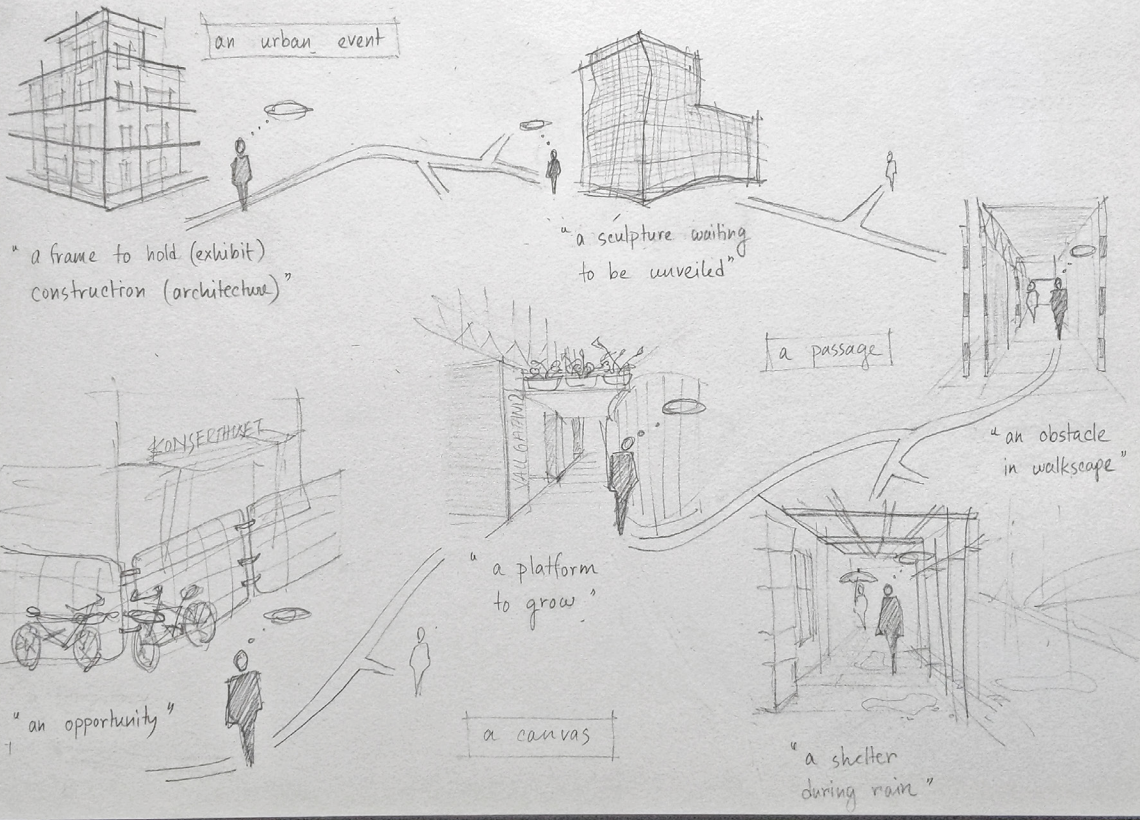 an urban event
"a frame to hold (exhibit)
construction (architecture)"
"a sculpture waiting
to be unveiled"
a passage
"an obstacle
in walkscape"
KONSERTHUSET
VALLGATAN
"a platform
to grow"
"an opportunity"
a canvas
"a shelter
during rain"